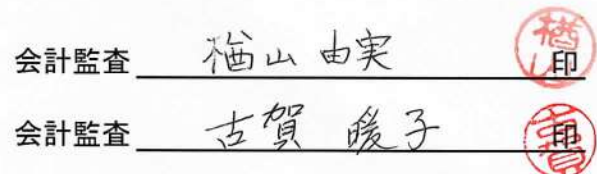 会計監査 楢山 由実 印
会計監査 古賀 暖子 印